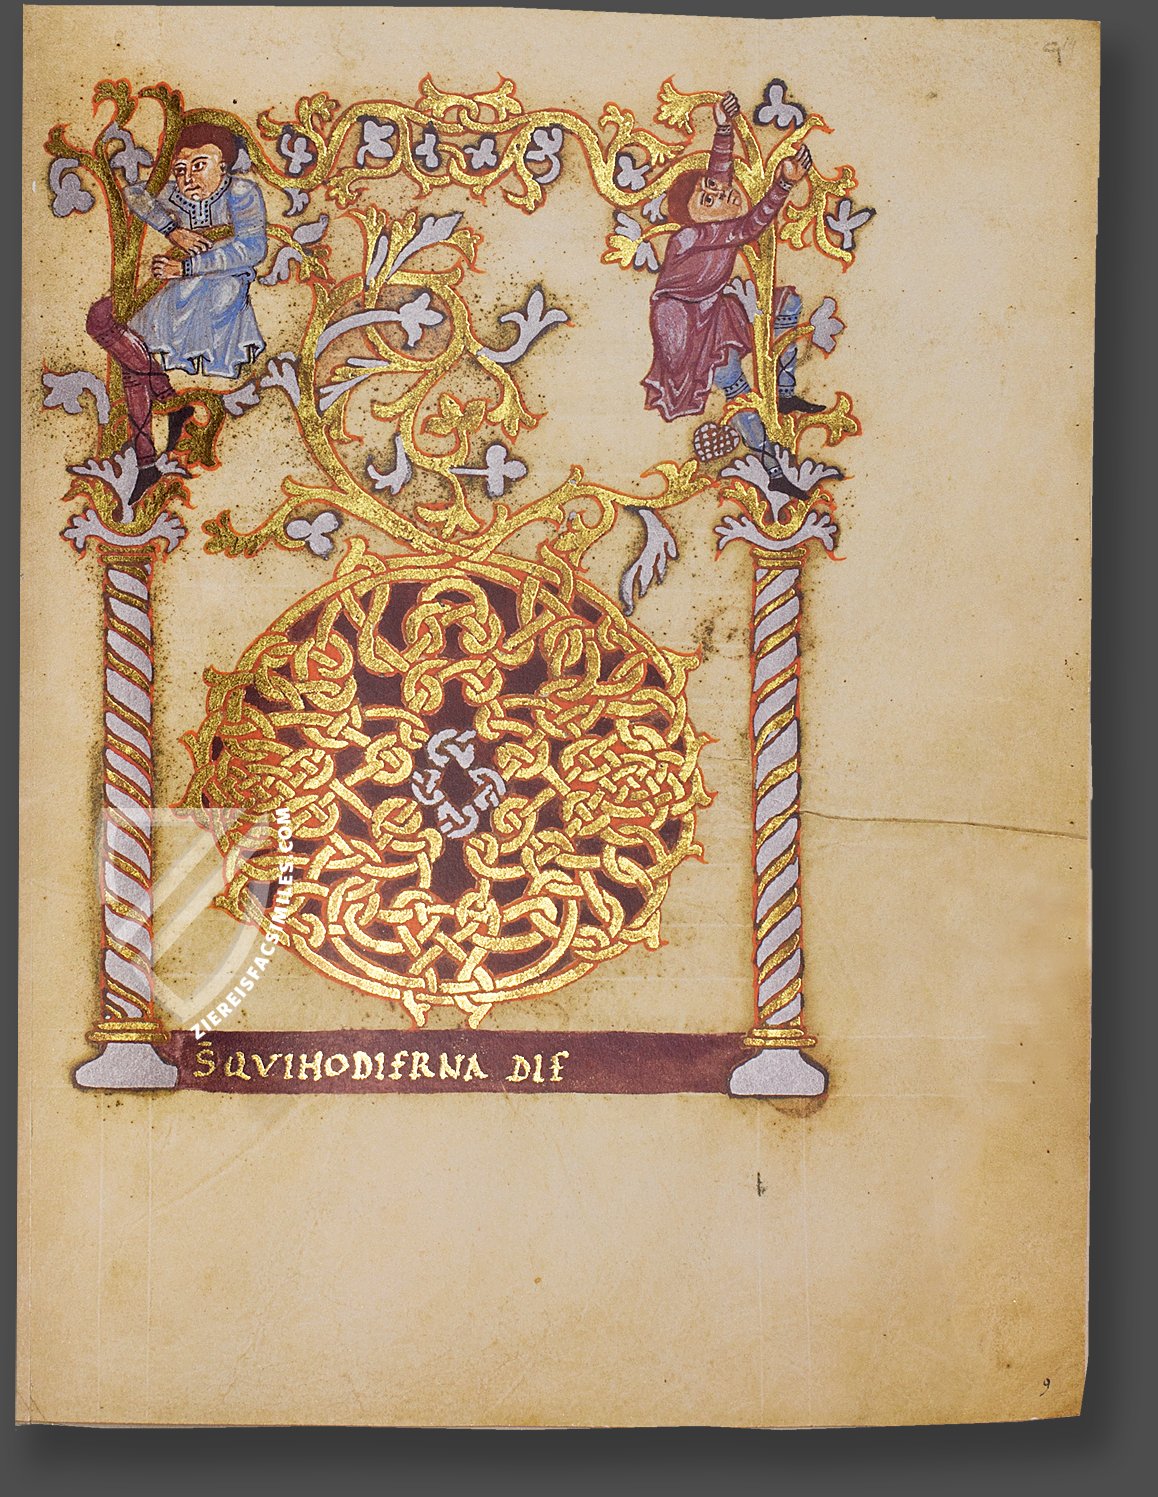 S̄ QVIHODIERNA DIE
ZIEREISFACSIMILES.COM
9